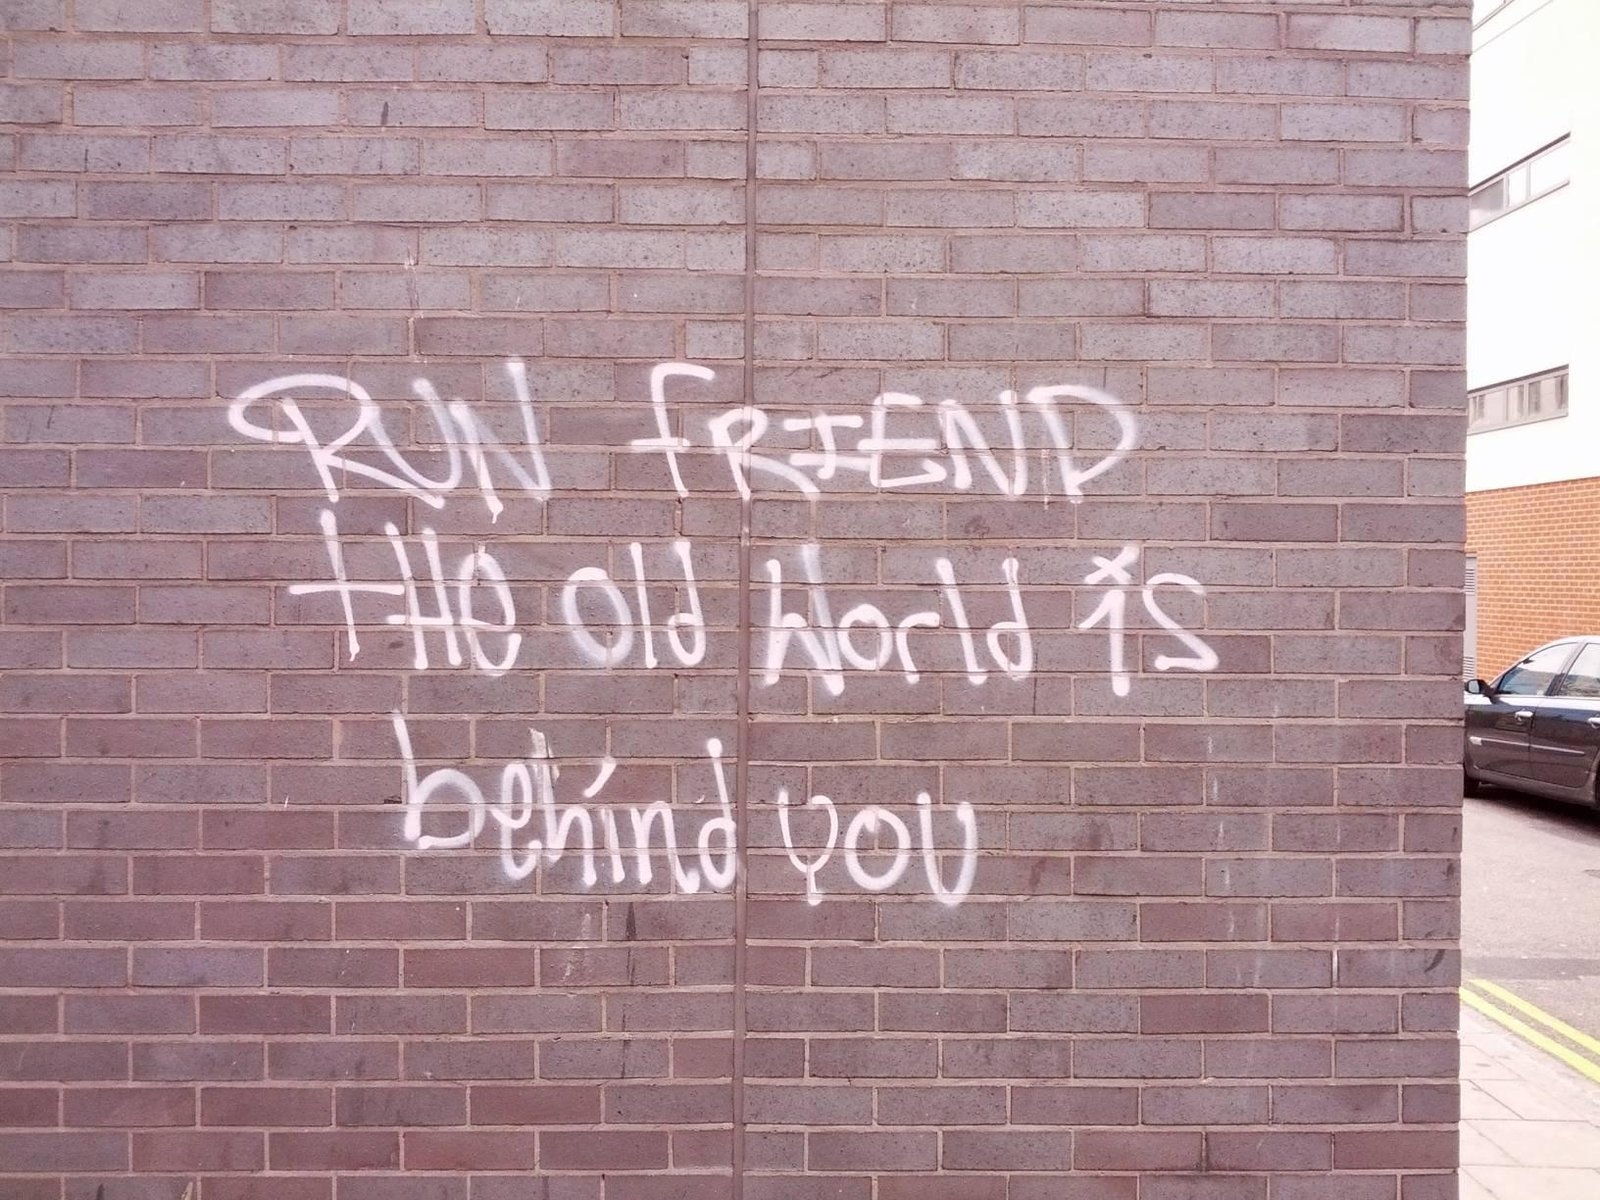 RUN fRIEND
tHe old World is
behind you